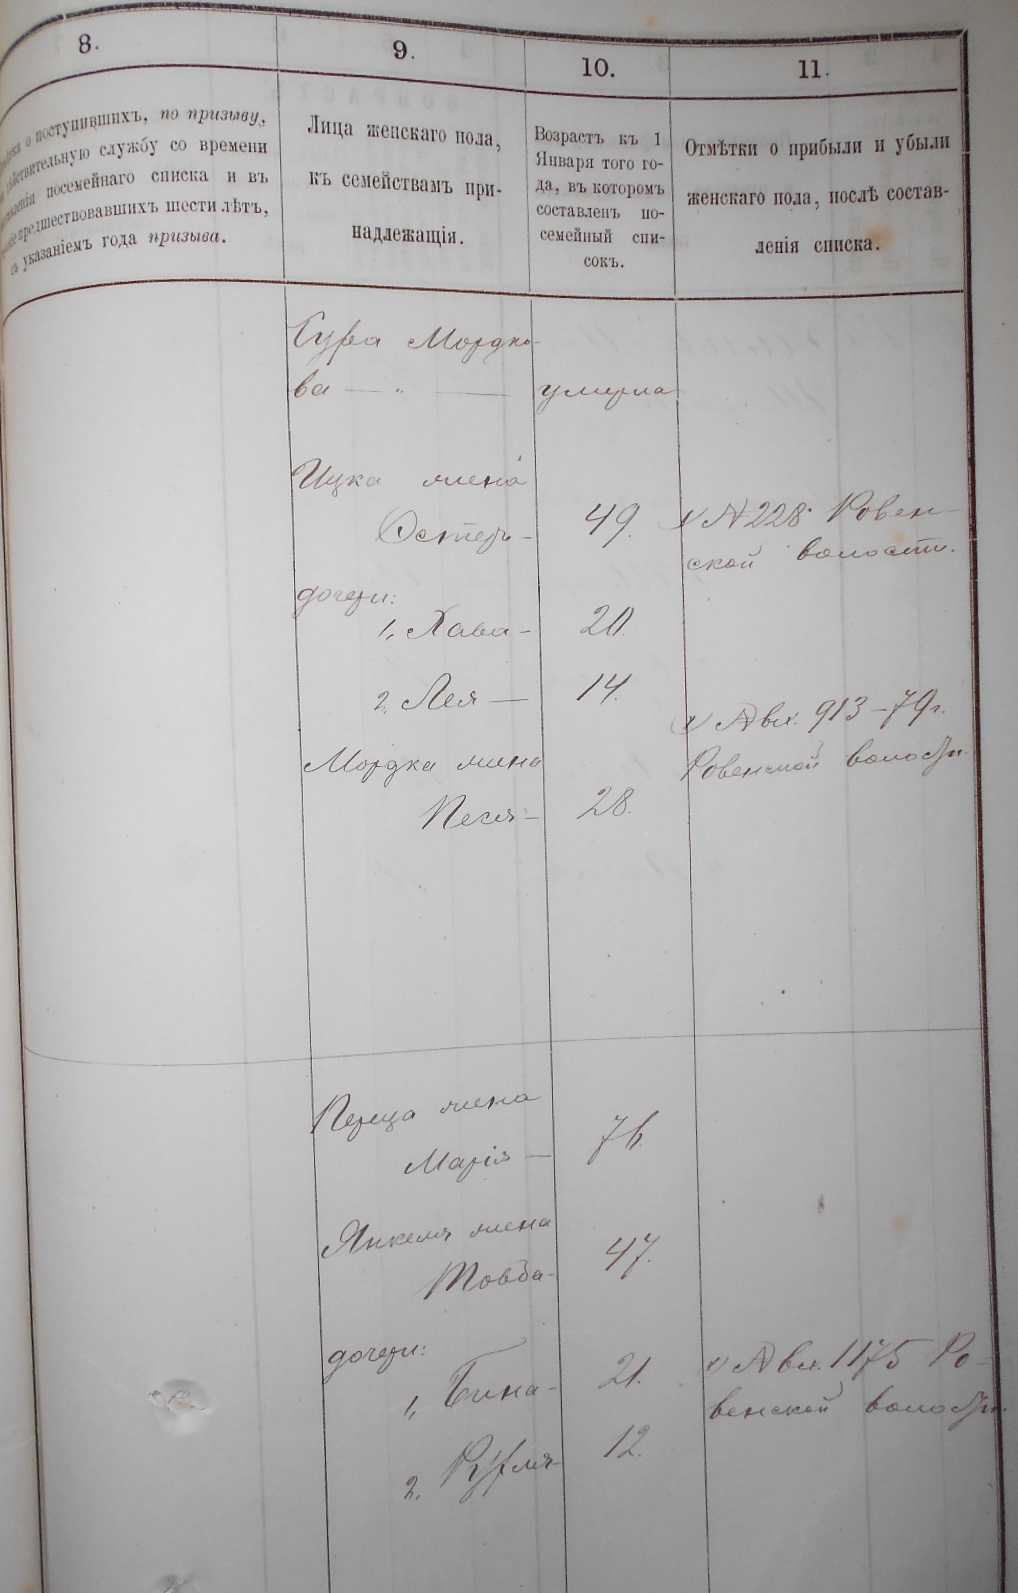 8.
9.
10.
11.
о поступившихъ, по призыву,
дѣйствительную службу со времени
посемейнаго списка и въ
предшествовавшихъ шести лѣтъ,
съ указаніемъ года призыва.
Лица женскаго пола,
къ семействамъ при-
надлежащія.
Возрастъ къ 1
Января того го-
да, въ которомъ
составленъ по-
семейный спи-
сокъ.
Отмѣтки о прибыли и убыли
женскаго пола, послѣ состав-
ленія списка.
Сура Мордко-
ва — " — умерла
Ицка жена
Эстеръ — 49.
№ 228 Ровен-
ской волости.
дочери:
1, Хава — 20.
2. Лея — 14.
№ вх. 913 – 79 г.
Ровенской волости.
Мордка жена
Песя — 28.
Перца жена
Марія — 76.
Янкеля жена
Товба — 47.
дочери:
1, Бина — 21.
№ вх. 1175 Ро-
венской волости.
2, 12.